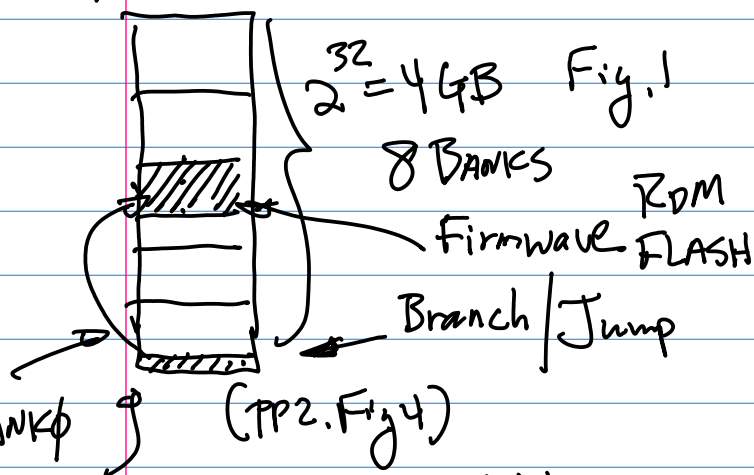 2^32 = 4 GB Fig.1
8 BANKS
Firmwave ROM
FLASH
Branch / Jump
NKϕ
(PP2. Fig 4)